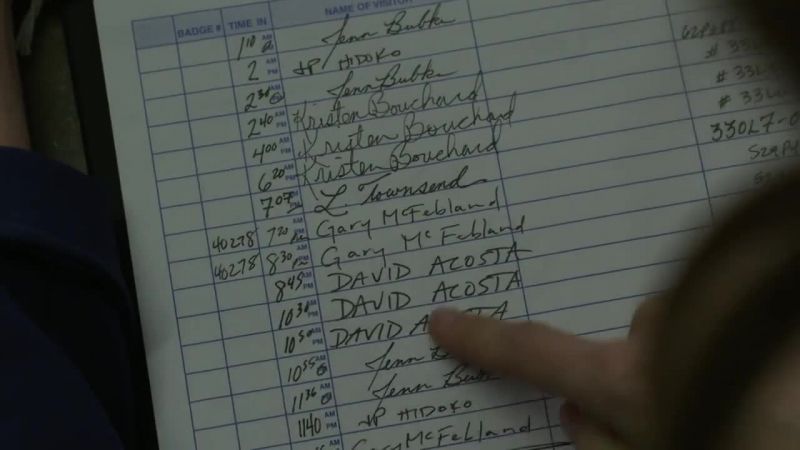 BADGE # TIME IN NAME OF VISITOR
1:18 AM PM Jenn Bubke
2 AM PM JP HIDOKO
2:30 AM Jenn Bubke
2:40 AM PM Kristen Bouchard 62P
4:00 AM PM Kristen Bouchard # 33L7
6:20 AM PM Kristen Bouchard # 33L
7:07 AM L. Townsend 33OL7-0
40278 7:20 AM Gary McFebland
40278 8:30 AM Gary McFebland
8:45 AM PM DAVID ACOSTA
10:30 AM PM DAVID ACOSTA
10:50 AM PM DAVID ACOSTA
10:55 AM Jenn
11:36 AM Jenn Bubke
1140 AM PM JP HIDOKO
AM Gary McFelland